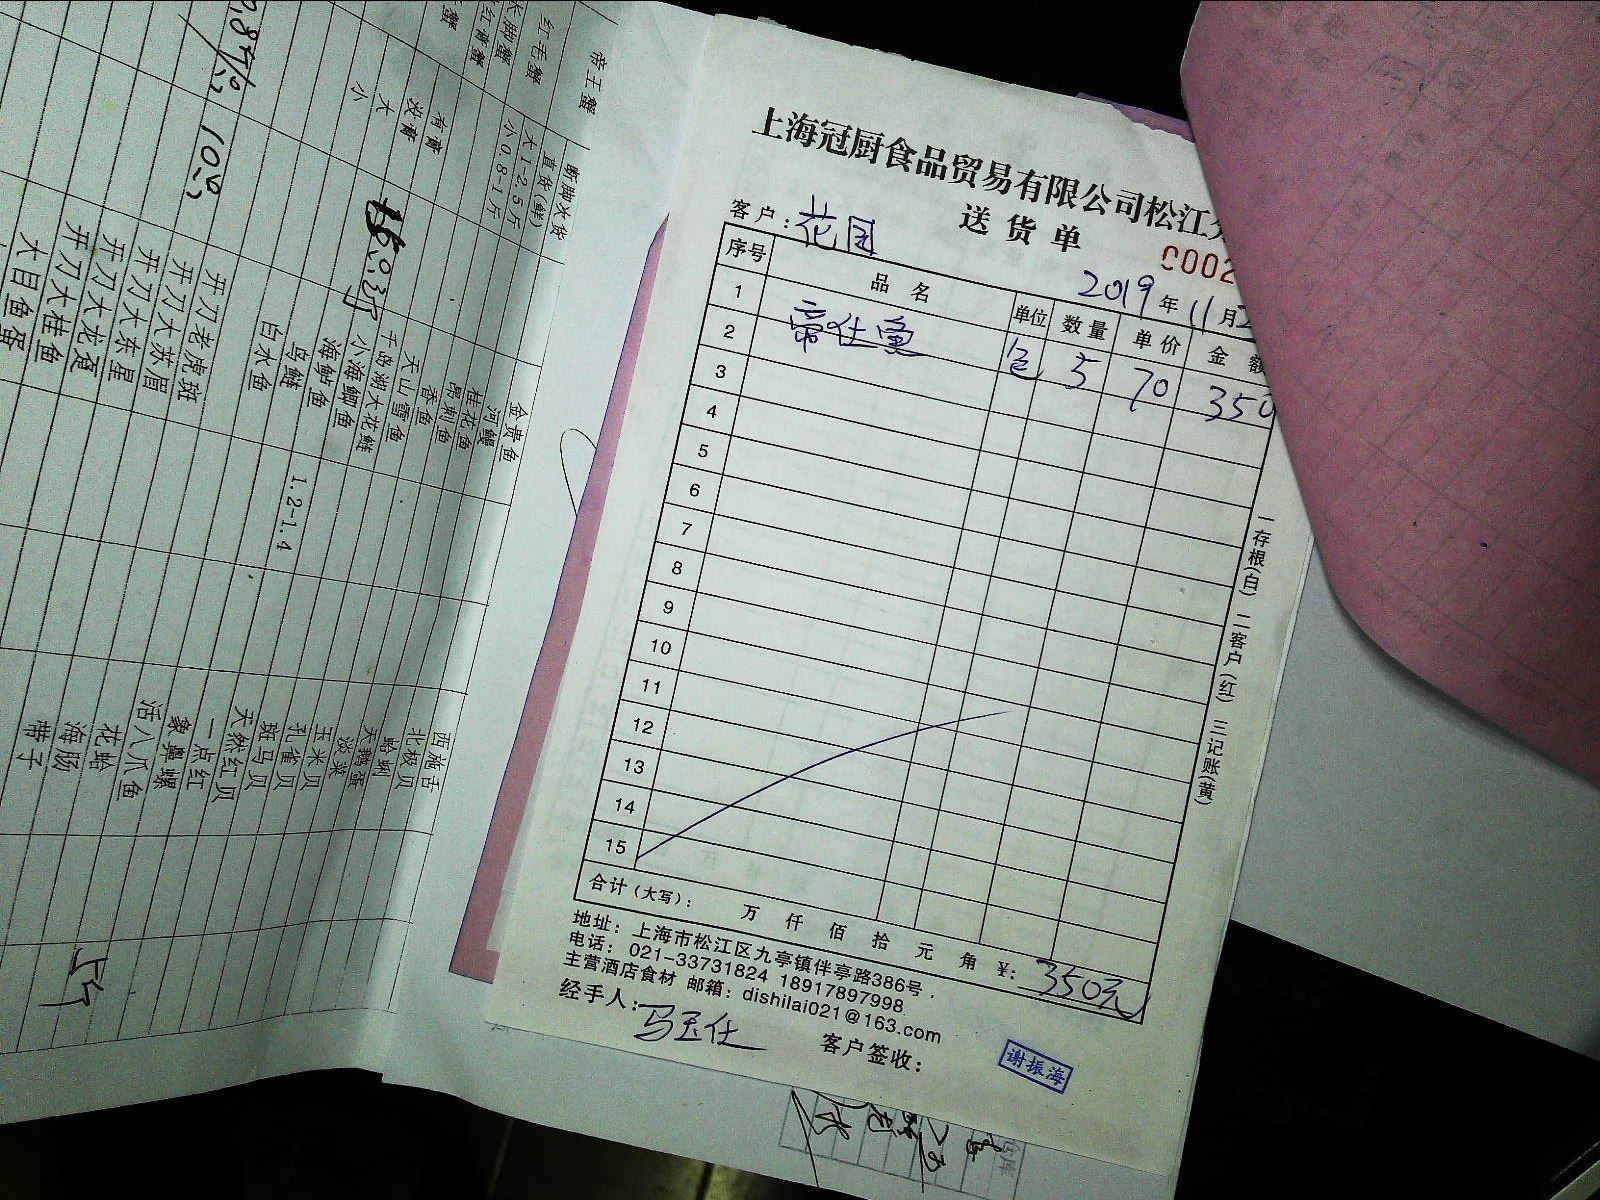 上海冠厨食品贸易有限公司松江
送货单
客户：花园
0002
2019年11月2
序号 品名 单位 数量 单价 金额
1 帝仕鱼 包 5 70 350
2
3
4
5
6
7
8
9
10
11
12
13
14
15
合计（大写）： 万 仟 佰 拾 元 角 ¥：350元
地址：上海市松江区九亭镇伴亭路386号
电话：021-33731824 18917897998
主营酒店食材 邮箱：dishilai021@163.com
经手人：马玉仕 客户签收：
谢振海
一存根(白) 二客户(红) 三记账(黄)
帝王蟹 断脚冰货
红毛蟹 直货(鲜)
长脚蟹 大1-2.5斤
红膏蟹 小0.8-1斤
蟹
有膏
没膏
大
小
金贵鱼
河鳗
桂花鱼
昂刺鱼
香鱼
天山雪鱼
千岛湖大花鲢
小海鲫鱼
海鲇鱼
乌鲢 1.2-1.4
白水鱼
开刀老虎斑
开刀大苏眉
开刀大东星
开刀大龙趸
开刀大桂鱼
大目鱼蛋
西施舌
北极贝
蛤蜊
天鹅蛋
淡菜
玉米贝
孔雀贝
斑马贝
天然红贝
一点红
象鼻螺
活八爪鱼
花蛤
海肠
带子